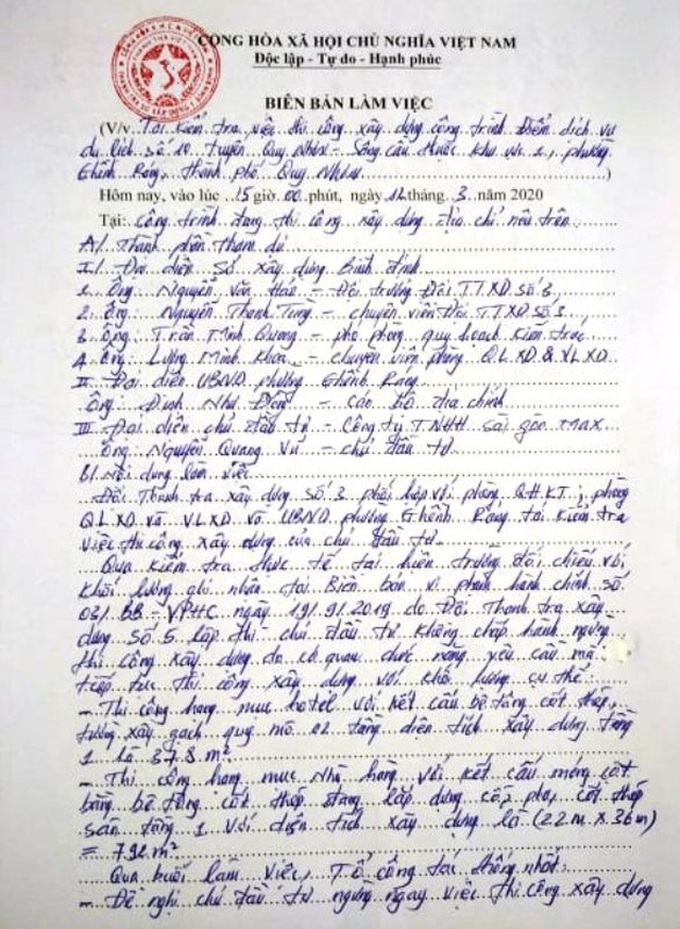 CỘNG HÒA XÃ HỘI CHỦ NGHĨA VIỆT NAM
Độc lập - Tự do - Hạnh phúc
BIÊN BẢN LÀM VIỆC
(V/v Tái kiểm tra việc thi công xây dựng công trình Điểm dịch vụ
du lịch số 10, tuyến Quy Nhơn - Sông Cầu thuộc khu vực 2, phường
Ghềnh Ráng, thành phố Quy Nhơn)
Hôm nay, vào lúc 15 giờ 00 phút, ngày 12 tháng 3 năm 2020
Tại: Công trình đang thi công xây dựng địa chỉ nêu trên
A/. Thành phần tham dự
I/. Đại diện Sở xây dựng Bình Định
1. Ông: Nguyễn Văn - Đội trưởng Đội TTXD số 3
2. Ông: Nguyễn Thanh Tùng - chuyên viên Đội TTXD số 3
3. Ông: Trần Minh Quang - phó phòng quy hoạch kiến trúc
4. Ông: Lương Minh Khoa - chuyên viên phòng QLXD & VLXD
II. Đại diện UBND phường Ghềnh Ráng
Ông: Định Như - cán bộ địa chính
III. Đại diện chủ đầu tư - Công ty TNHH Sài Gòn Max
Ông: Nguyễn Quang Vũ - chủ đầu tư
B/. Nội dung làm việc
Đội Thanh tra xây dựng số 3 phối hợp với phòng QHKT; phòng
QLXD và VLXD và UBND phường Ghềnh Ráng tái kiểm tra
việc thi công xây dựng của chủ đầu tư.
Qua kiểm tra thực tế tại hiện trường đối chiếu với
khối lượng ghi nhận tại Biên bản vi phạm hành chính số
03/BB-VPHC ngày 19/9/2019 do Đội Thanh tra xây
dựng số 5 lập thì chủ đầu tư không chấp hành ngừng
thi công xây dựng do cơ quan chức năng yêu cầu mà
tiếp tục thi công xây dựng với khối lượng cụ thể:
- Thi công hạng mục hotel với kết cấu bê tông cốt thép,
tường xây gạch quy mô 02 tầng diện tích xây dựng tầng
1 là 378 m²
- Thi công hạng mục Nhà hàng với kết cấu móng cột
bằng bê tông cốt thép đang lắp dựng cốp pha, cốt thép
sàn tầng 1 với diện tích xây dựng là (22m x 36m)
= 792 m²
Qua buổi làm việc, Tổ công tác thống nhất:
- Đề nghị chủ đầu tư ngừng ngay việc thi công xây dựng